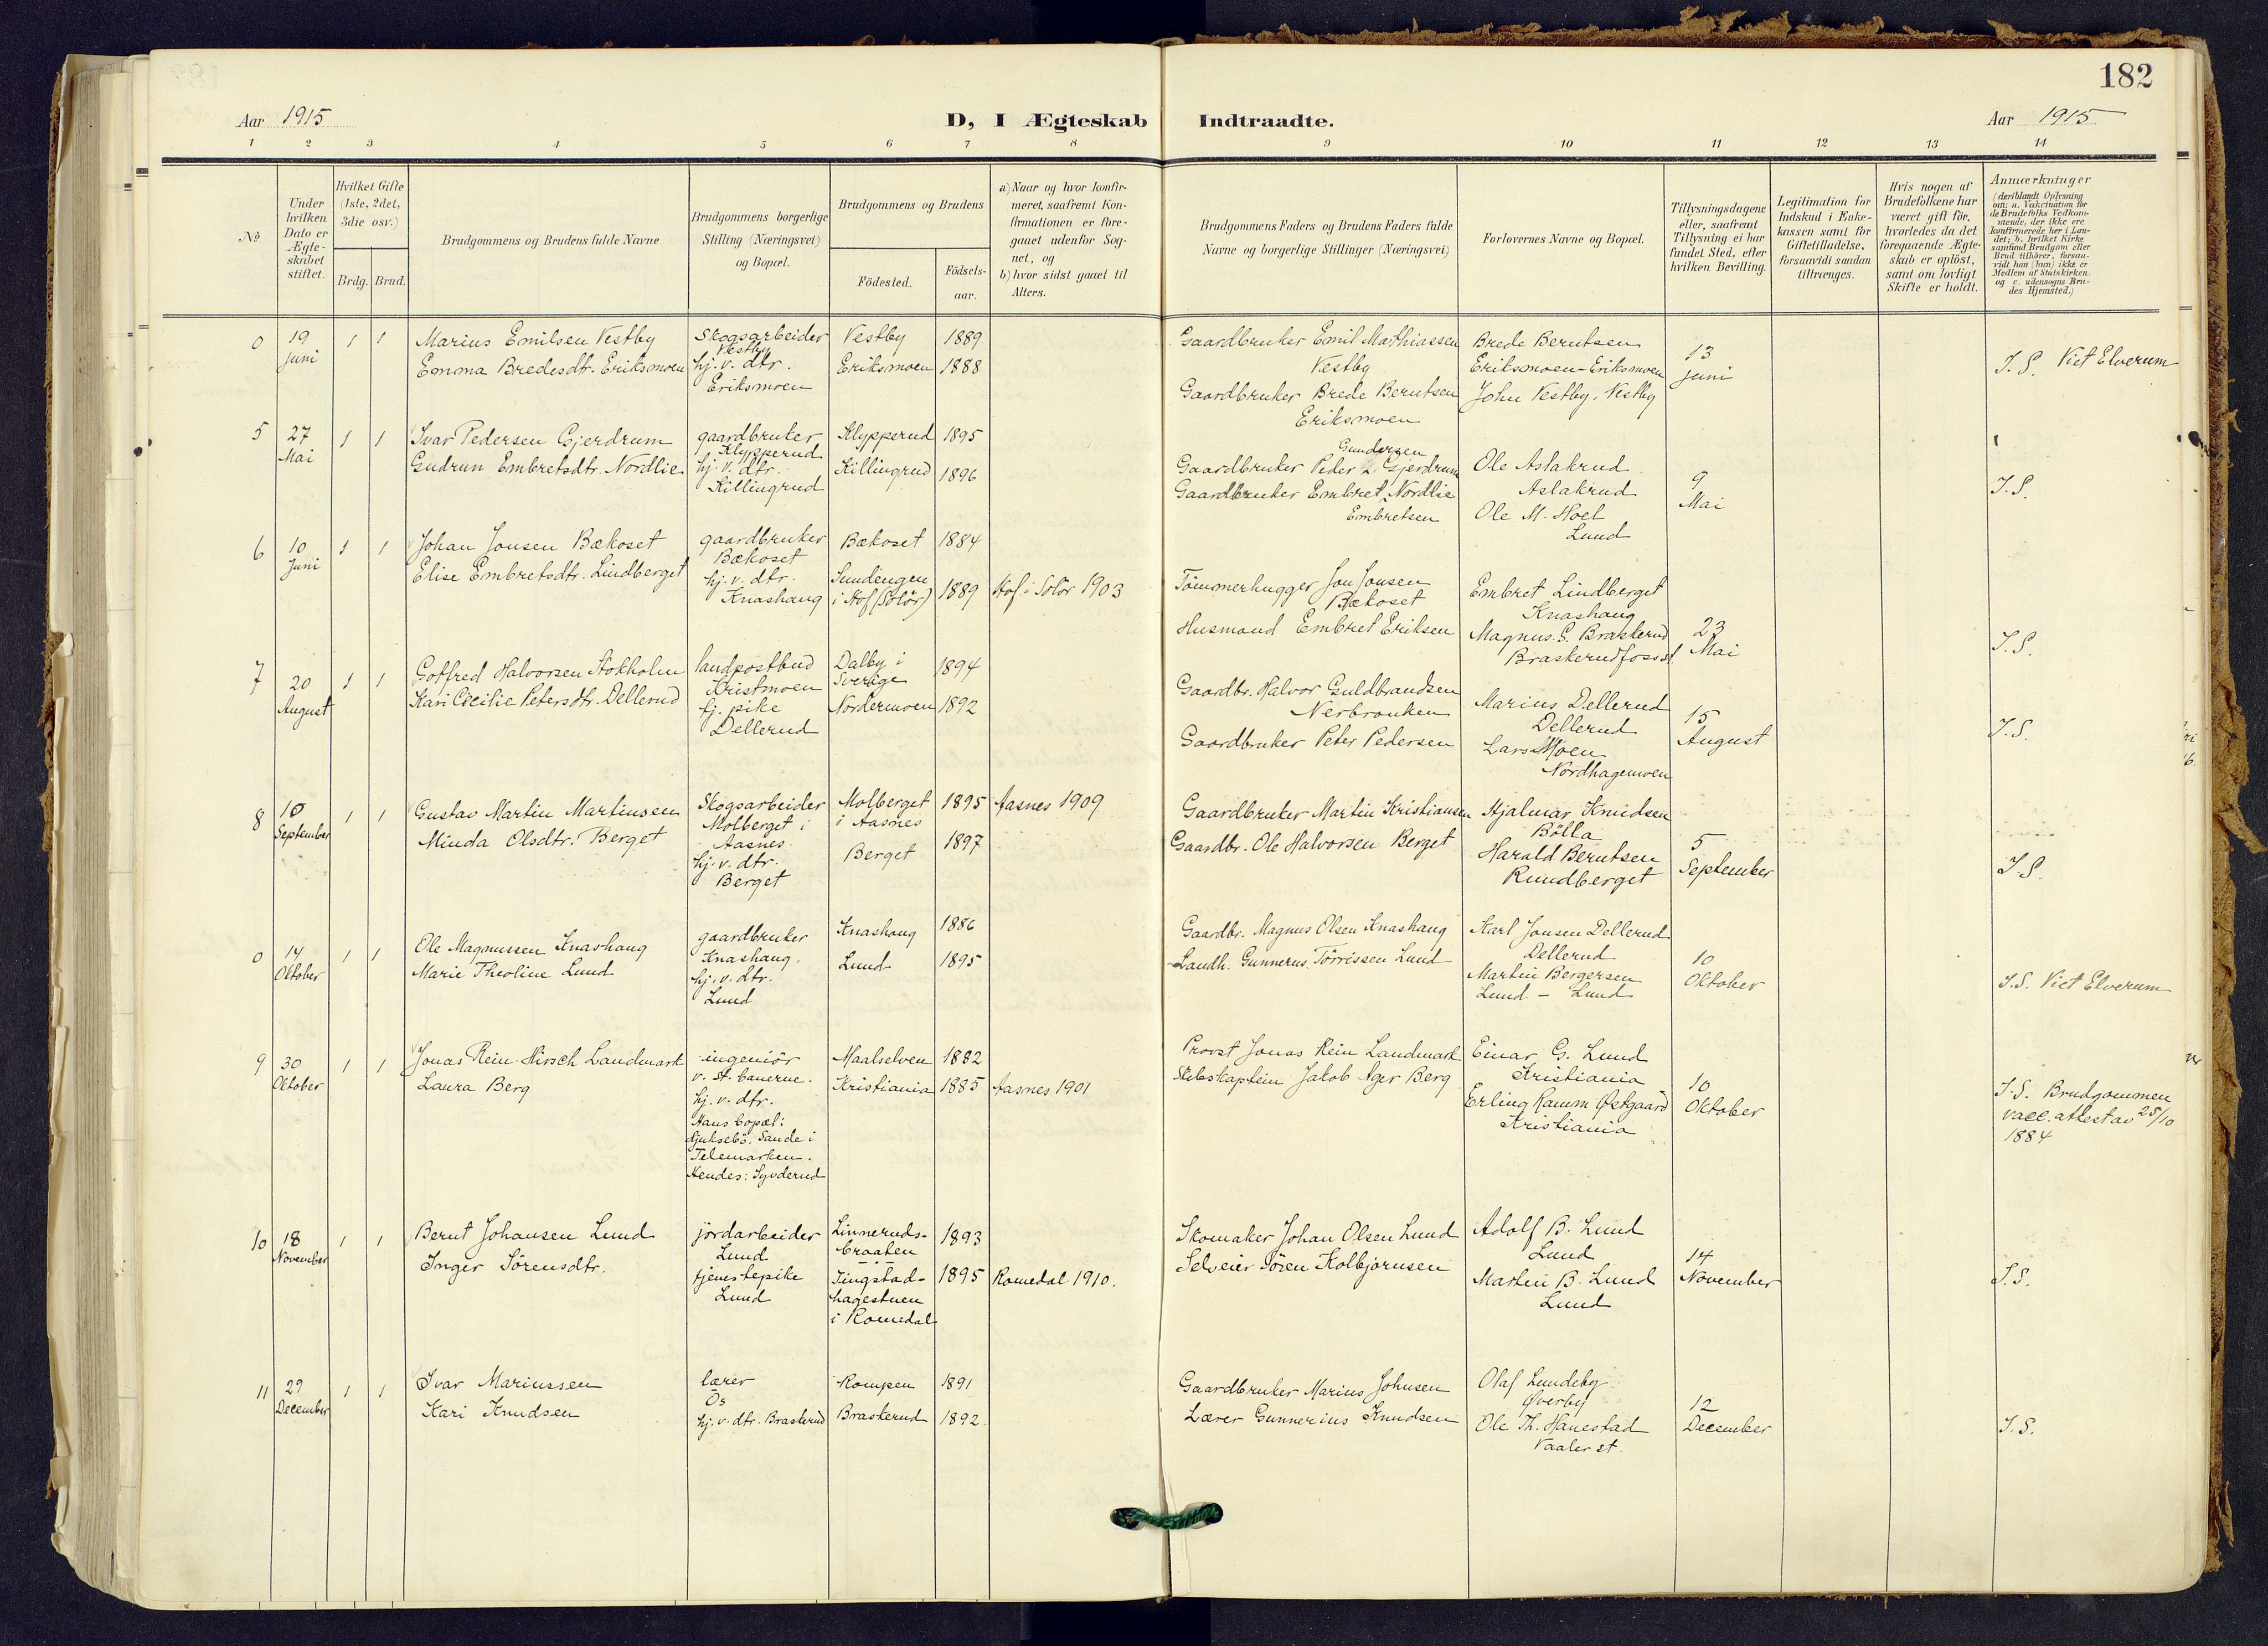 182
Aar 1915
D, I Ægteskab Indtraadte.
Aar 1915
1 2 3 4 5 6 7 8 9 10 11 12 13 14
No.
Under hvilken Dato er Ægteskabet stiftet.
Hvilket Gifte (1ste, 2det, 3die osv.)
Brdg. Brud.
Brudgommens og Brudens fulde Navne
Brudgommens borgerlige Stilling (Næringsvei) og Bopæl.
Brudgommens og Brudens
Födested.
Födsels-aar.
a) Naar og hvor konfirmeret, saafremt Konfirmationen er foregaaet udenfor Sognet, og
b) hvor sidst gaaet til Alters.
Brudgommens Faders og Brudens Faders fulde Navne og borgerlige Stillinger (Næringsvei)
Forlovernes Navne og Bopæl.
Tillysningsdagene eller, saafremt Tillysning ei har fundet Sted, efter hvilken Bevilling.
Legitimation for Indskud i Enkekassen samt for Giftetilladelse, forsaavidt saadan tiltrænges.
Hvis nogen af Brudefolkene har været gift för, hvorledes da det foregaaende Ægteskab er oplöst, samt om lovligt Skifte er holdt.
Anmærkninger
(deriblandt Oplysning om: a. Vakcination for de Brudefolks Vedkommende, der ikke ere konfirmerede her i Landet; b. hvilket Kirkesamfund Brudgom eller Brud tilhører, forsaavidt han (hun) ikke er Medlem af Statskirken. og c. udensogns Brudes Hjemsted.)
0 19 Juni 1 1
Marius Emilsen Vestby
Emma Bredesdtr. Eriksmoen
Skogsarbeider
Vestby
hj. v. dtr.
Eriksmoen
Vestby 1889
Eriksmoen 1888
Gaardbruker Emil Mathiassen
Vestby
Gaardbruker Brede Berntsen
Eriksmoen
Brede Berntsen
Eriksmoen - Eriksmoen
John Vestby, Vestby
13
Juni
I. S. Viet Elverum
5 27 Mai 1 1
Ivar Pedersen Gjerdrum
Gudrun Embretsdtr. Nordlie
gaardbruker
Klypperud
hj. v. dtr.
Killingrud
Klypperud 1895
Killingrud 1896
Gundersen
Gaardbruker Peder Gjerdrum
Gaardbruker Embret Nordlie
Embretsen
Ole Aslakrud
Aslakrud
Ole M. Hoel
Lund
9
Mai
I. S.
6 10 Juni 1 1
Johan Jonsen Bækoset
Elise Embretsdtr. Lindberget
gaardbruker
Bækoset
hj. v. dtr.
Knashaug
Bækoset 1884
Sundengen
i Hof (Solör) 1889
Hof i Solör 1903
Tömmerhugger Jon Jonsen
Bækoset
Husmand Embret Eriksen
Embret Lindberget
Knashaug
Magnus G. Braskerud
Braskerudfoss st.
23
Mai
I. S.
7 20 August 1 1
Gotfred Halvorsen Stokholm
Kari Cecilie Petersdtr. Dellerud
landpostbud
Kristmoen
tj. pike
Dellerud
Dalby i
Sverige 1894
Nordermoen 1892
Gaardbr. Halvor Guldbrandsen
Nerbraaken
Gaardbruker Peter Pedersen
Marius Dellerud
Dellerud
Lars Moen
Nordhagemoen
15
August
I. S.
8 10 September 1 1
Gustav Martin Martinsen
Minda Olsdtr. Berget
Skogsarbeider
Molberget i
Aasnes.
hj. v. dtr.
Berget
Molberget
i Aasnes 1895
Berget 1897
Aasnes 1909
Gaardbruker Martin Kristiansen
Gaardbr. Ole Halvorsen Berget
Hjalmar Knudsen
Bölla
Harald Berntsen
Rundberget
5
September
I. S.
0 14 Oktober 1 1
Ole Magnussen Knashaug
Marie Theoline Lund
gaardbruker
Knashaug.
hj. v. dtr.
Lund
Knashaug 1886
Lund 1895
Gaardbr. Magnus Olsen Knashaug
Landh. Gunnerus Törrissen Lund
Karl Jonsen Dellerud
Dellerud
Martin Bergersen
Lund - Lund
10
Oktober
I. S. Viet Elverum
9 30 Oktober 1 1
Jonas Rein Hirsch Landmark
Laura Berg
ingeniör
v. st. banerne.
hj. v. dtr.
Hans bopæl:
Sande i
Telemarken.
Hendes: Syvderud
Maalselven 1882
Kristiania 1885
Aasnes 1901
Provst Jonas Rein Landmark
Skibskaptein Jakob Ager Berg
Einar G. Lund
Kristiania
Erling Ramm Østgaard
Kristiania
10
Oktober
I. S. Brudgommen
vacc. attest av 25/10
1884
10 18 November 1 1
Bernt Johansen Lund
Inger Sörensdtr.
jördarbeider
Lund
tjenestepike
Lund
Linneruds-
braaten 1893
Tingstad-
hagestuen
i Romedal 1895
Romedal 1910.
Skomaker Johan Olsen Lund
Selveier Sören Kolbjörnsen
Adolf B. Lund
Lund
Martin B. Lund
Lund
14
November
I. S.
11 29 December 1 1
Ivar Mariussen
Kari Knudsen
lærer
Os
hj. v. dtr. Braskerud
Rompen 1891
Braskerud 1892.
Gaardbruker Marius Johnsen
Lærer Gunnerius Knudsen
Olaf Lundeby
Øverby
Ole Th. Hanestad
Vaaler st.
12
December
I. S.